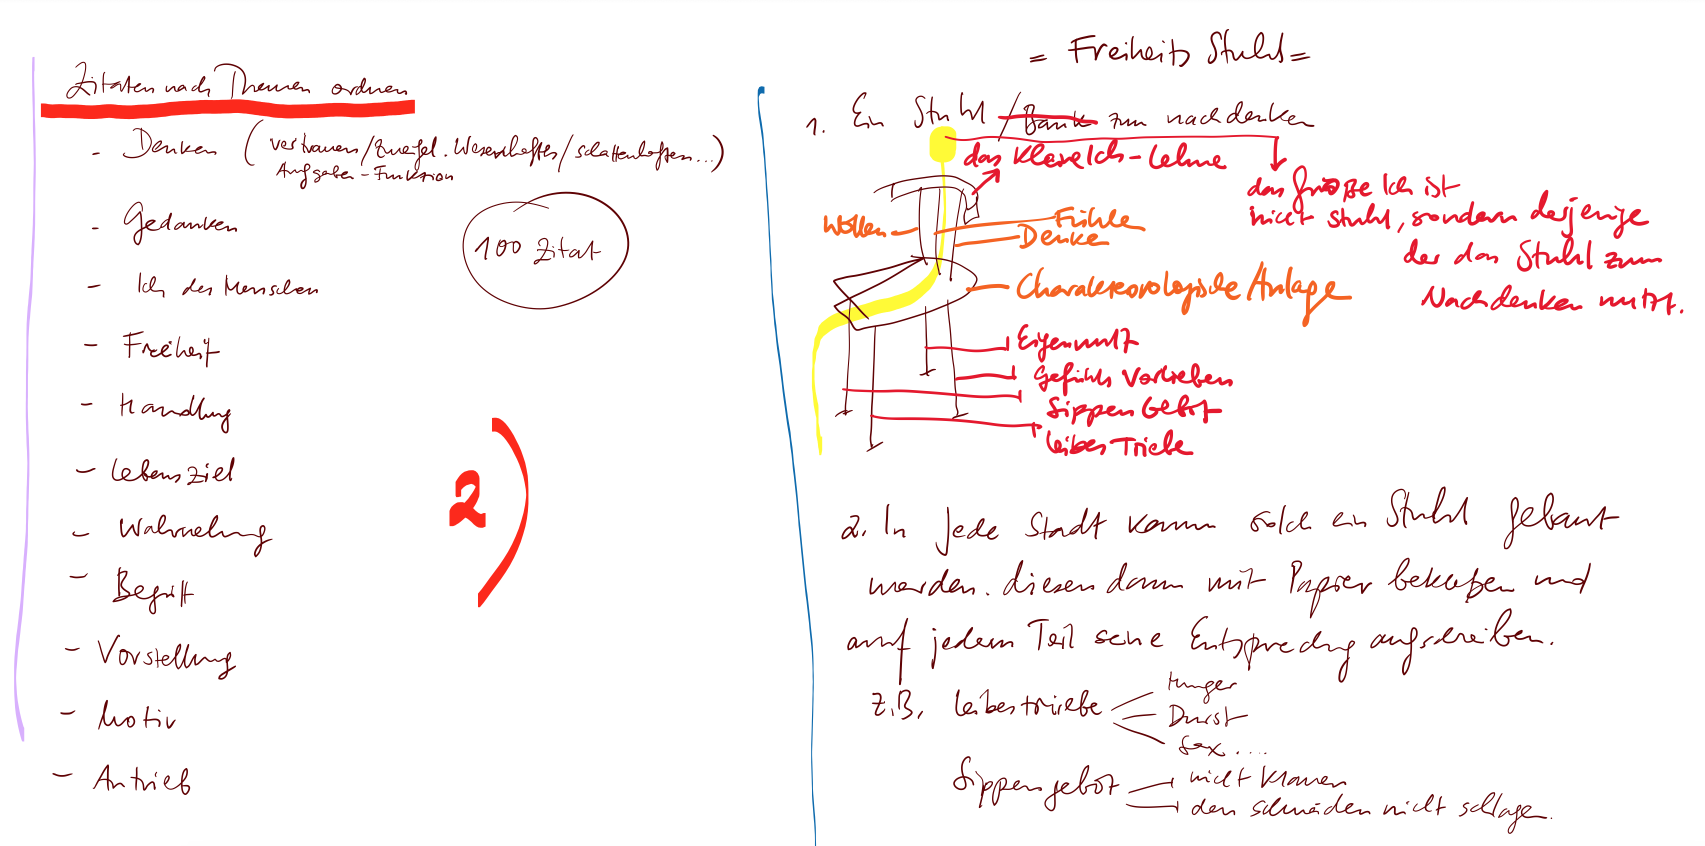 Zitaten nach Themen ordnen
- Denken (vertrauen/Zweifel. Wesenhaftes/schattenhaften...)
Aufgaben-Funktion
- Gedanken
100 Zitat
- Ich des Menschen
- Freiheit
- Handlung
- Lebensziel
- Wahrnehung
- Begriff
- Vorstellung
- Motiv
- Antrieb
2)
= Freiheits Stuhl =
1. Ein Stuhl / Bank zum nachdenken
das kleine Ich-Lehne
das große Ich ist
nicht Stuhl, sondern derjenige
der das Stuhl zum
Nachdenken nutzt.
Wollen
Fühle
Denke
Charakterologische Anlage
Eigennutz
Gefühls Vorlieben
Sippen Gebot
Leibes Triebe
2. In jede Stadt kann solch ein Stuhl gebaut
werden. diesen dann mit Papier bekleben und
auf jedem Teil seine Entsprechung aufschreiben.
z.B. Leibestriebe
Hunger
Durst
Sex....
Sippengebot
nicht klauen
den schwächen nicht schlagen.